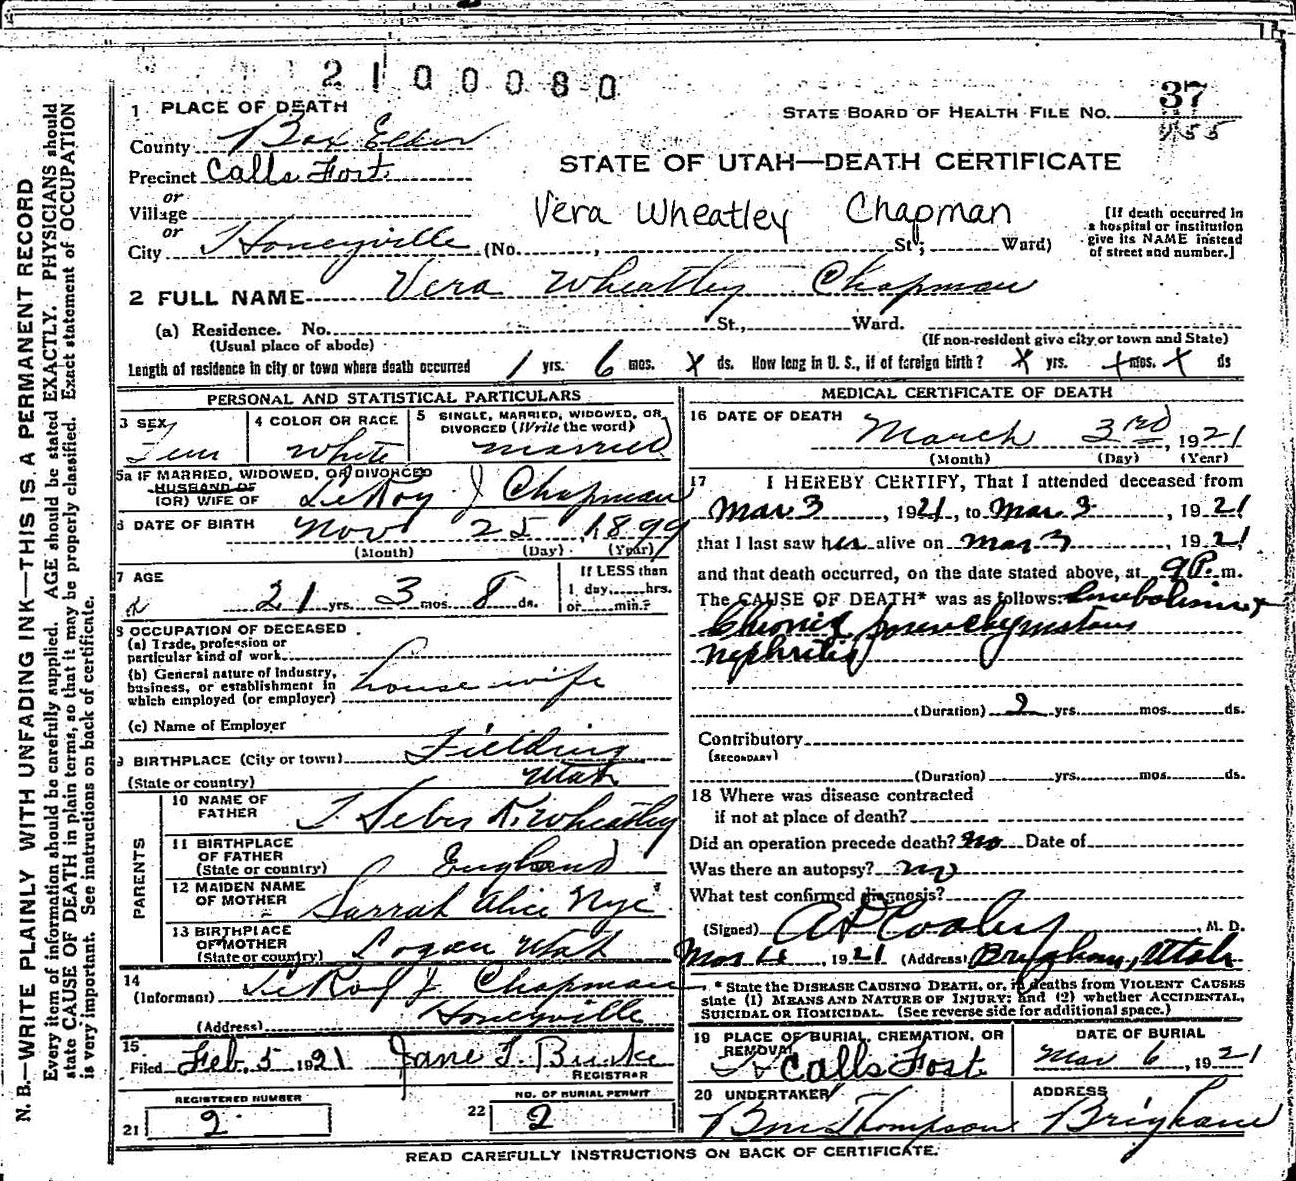 2100080
1 PLACE OF DEATH
STATE BOARD OF HEALTH FILE NO. 37
County Box Elder
STATE OF UTAH—DEATH CERTIFICATE
Precinct Calls Fort
or
Village
Vera Wheatley Chapman
[If death occurred in
a hospital or institution
give its NAME instead
of street and number.]
or
City Honeyville (No. , St; Ward)
2 FULL NAME Vera Wheatley Chapman
(a) Residence. No. St., Ward.
(Usual place of abode)
(If non-resident give city or town and State)
Length of residence in city or town where death occurred 1 yrs. 6 mos. x ds. How long in U. S., if of foreign birth? x yrs. x mos. x ds
PERSONAL AND STATISTICAL PARTICULARS
3 SEX
Fem
4 COLOR OR RACE
White
5 SINGLE, MARRIED, WIDOWED, OR
DIVORCED (Write the word)
married
5a IF MARRIED, WIDOWED, OR DIVORCED
HUSBAND OF
(OR) WIFE OF LeRoy J Chapman
6 DATE OF BIRTH Nov 25 1899
(Month) (Day) (Year)
7 AGE
21 yrs. 3 mos. 8 ds.
If LESS than
1 day, hrs.
or min.?
8 OCCUPATION OF DECEASED
(a) Trade, profession or
particular kind of work
(b) General nature of Industry,
business, or establishment in
which employed (or employer)
house wife
(c) Name of Employer
9 BIRTHPLACE (City or town) Fielding
(State or country) Utah
PARENTS
10 NAME OF
FATHER Wheatley
11 BIRTHPLACE
OF FATHER
(State or country) England
12 MAIDEN NAME
OF MOTHER Sarrah Alice Nye
13 BIRTHPLACE
OF MOTHER
(State or country) Logan Utah
14
(Informant) LeRoy J. Chapman
(Address) Honeyville
15
Filed Feb. 5 1921 Jane T. Burke
REGISTRAR
REGISTERED NUMBER
21 2
NO. OF BURIAL PERMIT
22 2
MEDICAL CERTIFICATE OF DEATH
16 DATE OF DEATH March 3rd, 1921
(Month) (Day) (Year)
17 I HEREBY CERTIFY, That I attended deceased from
Mar 3, 1921, to Mar 3, 1921
that I last saw her alive on Mar 3, 1921
and that death occurred, on the date stated above, at 9 P. m.
The CAUSE OF DEATH* was as follows:
Chronic parenchymatous
nephritis
(Duration) 2 yrs. mos. ds.
Contributory
(SECONDARY)
(Duration) yrs. mos. ds.
18 Where was disease contracted
if not at place of death?
Did an operation precede death? no Date of
Was there an autopsy? no
What test confirmed diagnosis?
(Signed) A D Cooley, M. D.
Mar 4, 1921 (Address) Brigham, Utah
* State the DISEASE CAUSING DEATH, or, in deaths from VIOLENT CAUSES
state (1) MEANS AND NATURE OF INJURY; and (2) whether ACCIDENTAL,
SUICIDAL OR HOMICIDAL. (See reverse side for additional space.)
19 PLACE OF BURIAL, CREMATION, OR
REMOVAL
Calls Fort
DATE OF BURIAL
Mar 6, 1921
20 UNDERTAKER
Thompson
ADDRESS
Brigham
READ CAREFULLY INSTRUCTIONS ON BACK OF CERTIFICATE.
N. B.—WRITE PLAINLY WITH UNFADING INK—THIS IS A PERMANENT RECORD
Every item of information should be carefully supplied. AGE should be stated EXACTLY. PHYSICIANS should
state CAUSE OF DEATH in plain terms, so that it may be properly classified. Exact statement of OCCUPATION
is very important. See instructions on back of certificate.